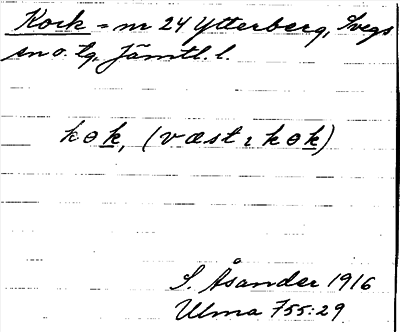 Kock = nr 24 Ytterberg, Svegs
sn o. tg, Jämtl. l.
kɵk, (væstɩ kɵk)
S. Åsander 1916
Ulma 755:29